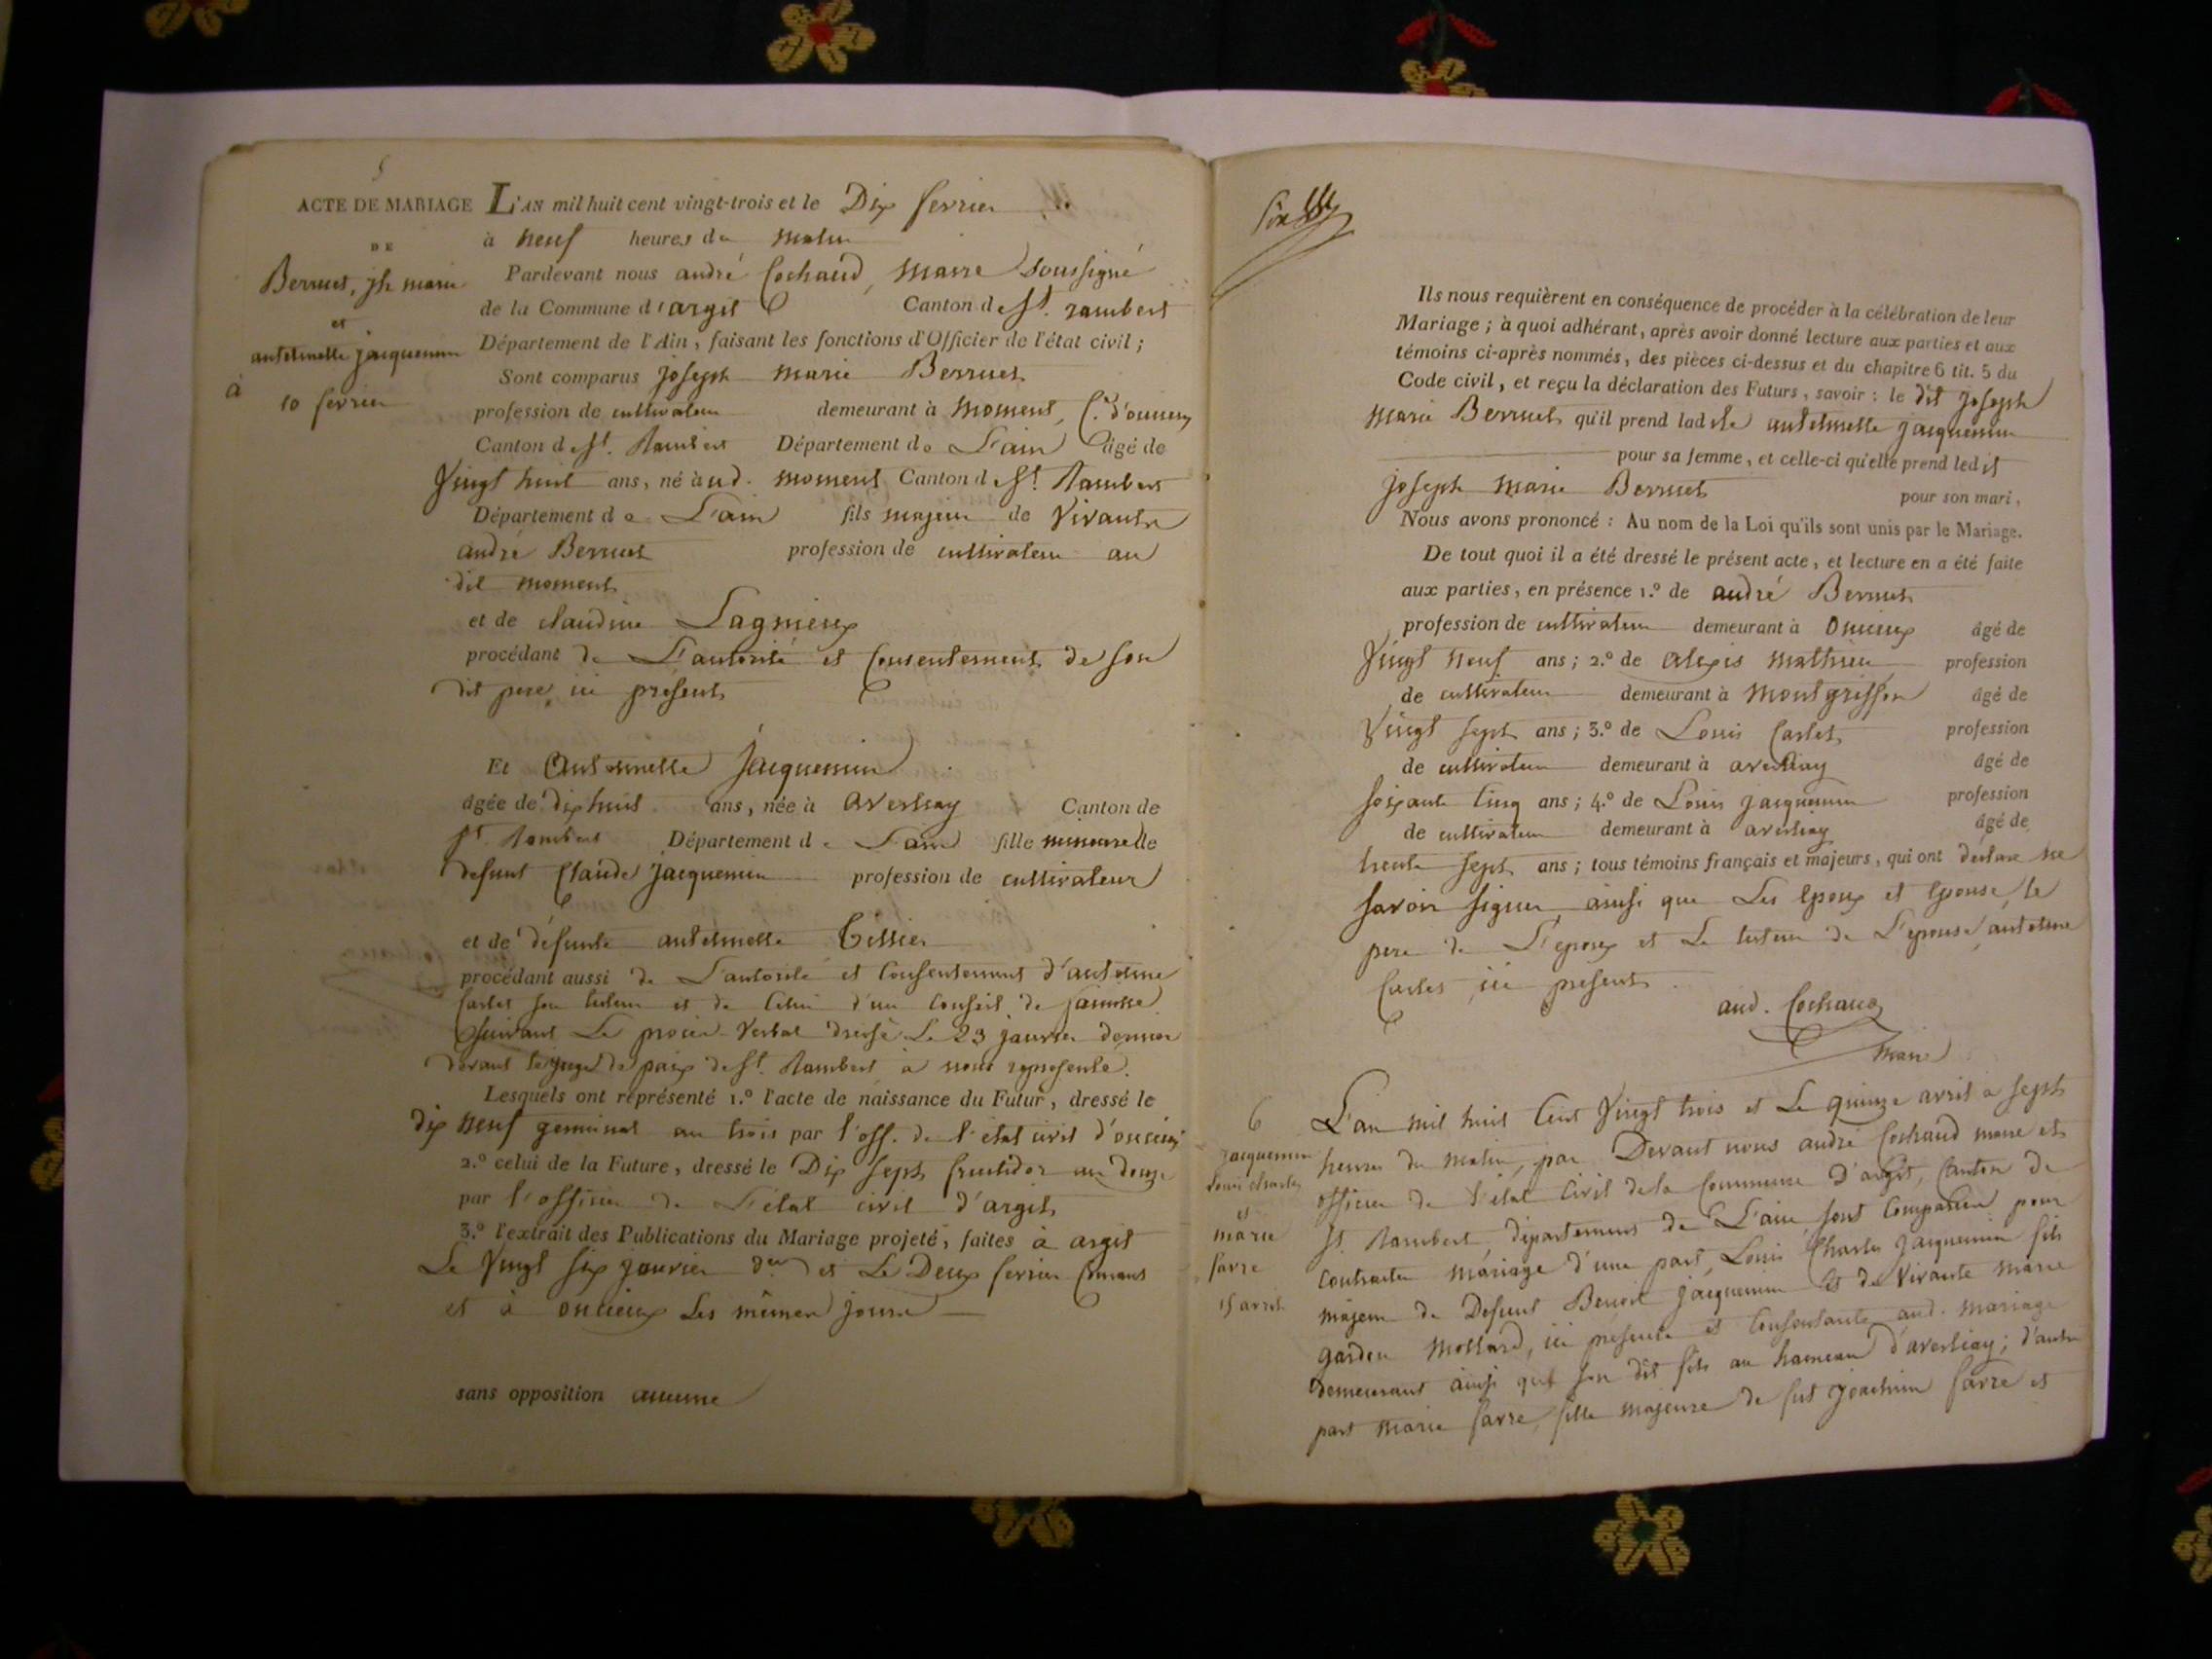 5
ACTE DE MARIAGE
DE
Berruet, jh marie
et
anthelmette jacquemin
à
10 fevrier
L'AN mil huit cent vingt-trois et le Dix fevrier
à neuf heures du matin
Pardevant nous andré Cochaud, maire soussigné
de la Commune d'argit Canton de St. rambert
Département de l'Ain, faisant les fonctions d'Officier de l'état civil;
Sont comparus joseph marie Berruet
profession de cultivateur demeurant à moment, Cne d'oncieux
Canton de St. Rambert Département de L'ain âgé de
Vingt huit ans, né àud. moment Canton de St. Rambert
Département de L'ain fils majeur de Vivant
andré Berruet profession de cultivateur au
dit moment
et de claudine Lagnieux
procédant de L'autorité et Consentement de son
dit pere, ici present
Et anthelmette Jacquemin
âgée de dix huit ans, née à averliay Canton de
St. Rambert Département de L'ain fille mineure de
defunt Claude Jacquemin profession de cultivateur
et de défunte anthelmette Tissier
procédant aussi de L'autorité et Consentement d'anthelme
Carlet son tuteur et de Celui d'un Conseil de famille
suivant Le procès verbal dressé Le 23 janvier dernier
devant le juge de paix de St. Rambert à nous representé.
Lesquels ont représenté 1.º l'acte de naissance du Futur, dressé le
dix neuf germinal an trois par l'off. de l'état civil d'oncieux
2.º celui de la Future, dressé le Dix sept fructidor an douze
par l'officier de L'état civil d'argit
3.º l'extrait des Publications du Mariage projeté, faites à argit
Le Vingt six janvier der et Le Deux fevrier Courant
et à oncieux Les mêmes jours
sans opposition aucune
Six
Ils nous requièrent en conséquence de procéder à la célébration de leur
Mariage; à quoi adhérant, après avoir donné lecture aux parties et aux
témoins ci-après nommés, des pièces ci-dessus et du chapitre 6 tit. 5 du
Code civil, et reçu la déclaration des Futurs, savoir: le dit joseph
marie Berruet qu'il prend ladite anthelmette jacquemin
pour sa femme, et celle-ci qu'elle prend ledit
joseph marie Berruet pour son mari,
Nous avons prononcé: Au nom de la Loi qu'ils sont unis par le Mariage.
De tout quoi il a été dressé le présent acte, et lecture en a été faite
aux parties, en présence 1.º de andré Berruet
profession de cultivateur demeurant à Oncieux âgé de
Vingt neuf ans; 2.º de alexis mathieu profession
de cultivateur demeurant à montgriffon âgé de
Vingt sept ans; 3.º de Louis Carlet profession
de cultivateur demeurant à averliay âgé de
soixante Cinq ans; 4.º de Louis jacquemin profession
de cultivateur demeurant à averliay âgé de
trente sept ans; tous témoins français et majeurs, qui ont declare ne
savoir signer ainsi que Les epoux et epouse, le
pere de L'epoux et Le tuteur de L'epouse, anthelme
Carlet, ici present.
and. Cochaud
maire
6
jacquemin
Louis charles
et
marie
favre
15 avril
L'an mil huit Cent Vingt trois et Le quinze avril à sept
heures du matin, par Devant nous andré Cochaud maire et
officier de l'état Civil de la Commune D'argit, Canton de
St. Rambert département de L'ain, sont Comparus pour
Contracter mariage d'une part, Louis Charles Jacquemin fils
majeur de Defunt Benoit jacquemin et de Vivante marie
garden mollard, ici presente et Consentante aud. mariage
demeurant ainsi que son dit fils au hameau d'averliay; d'autre
part marie favre, fille majeure de fut joachim favre et